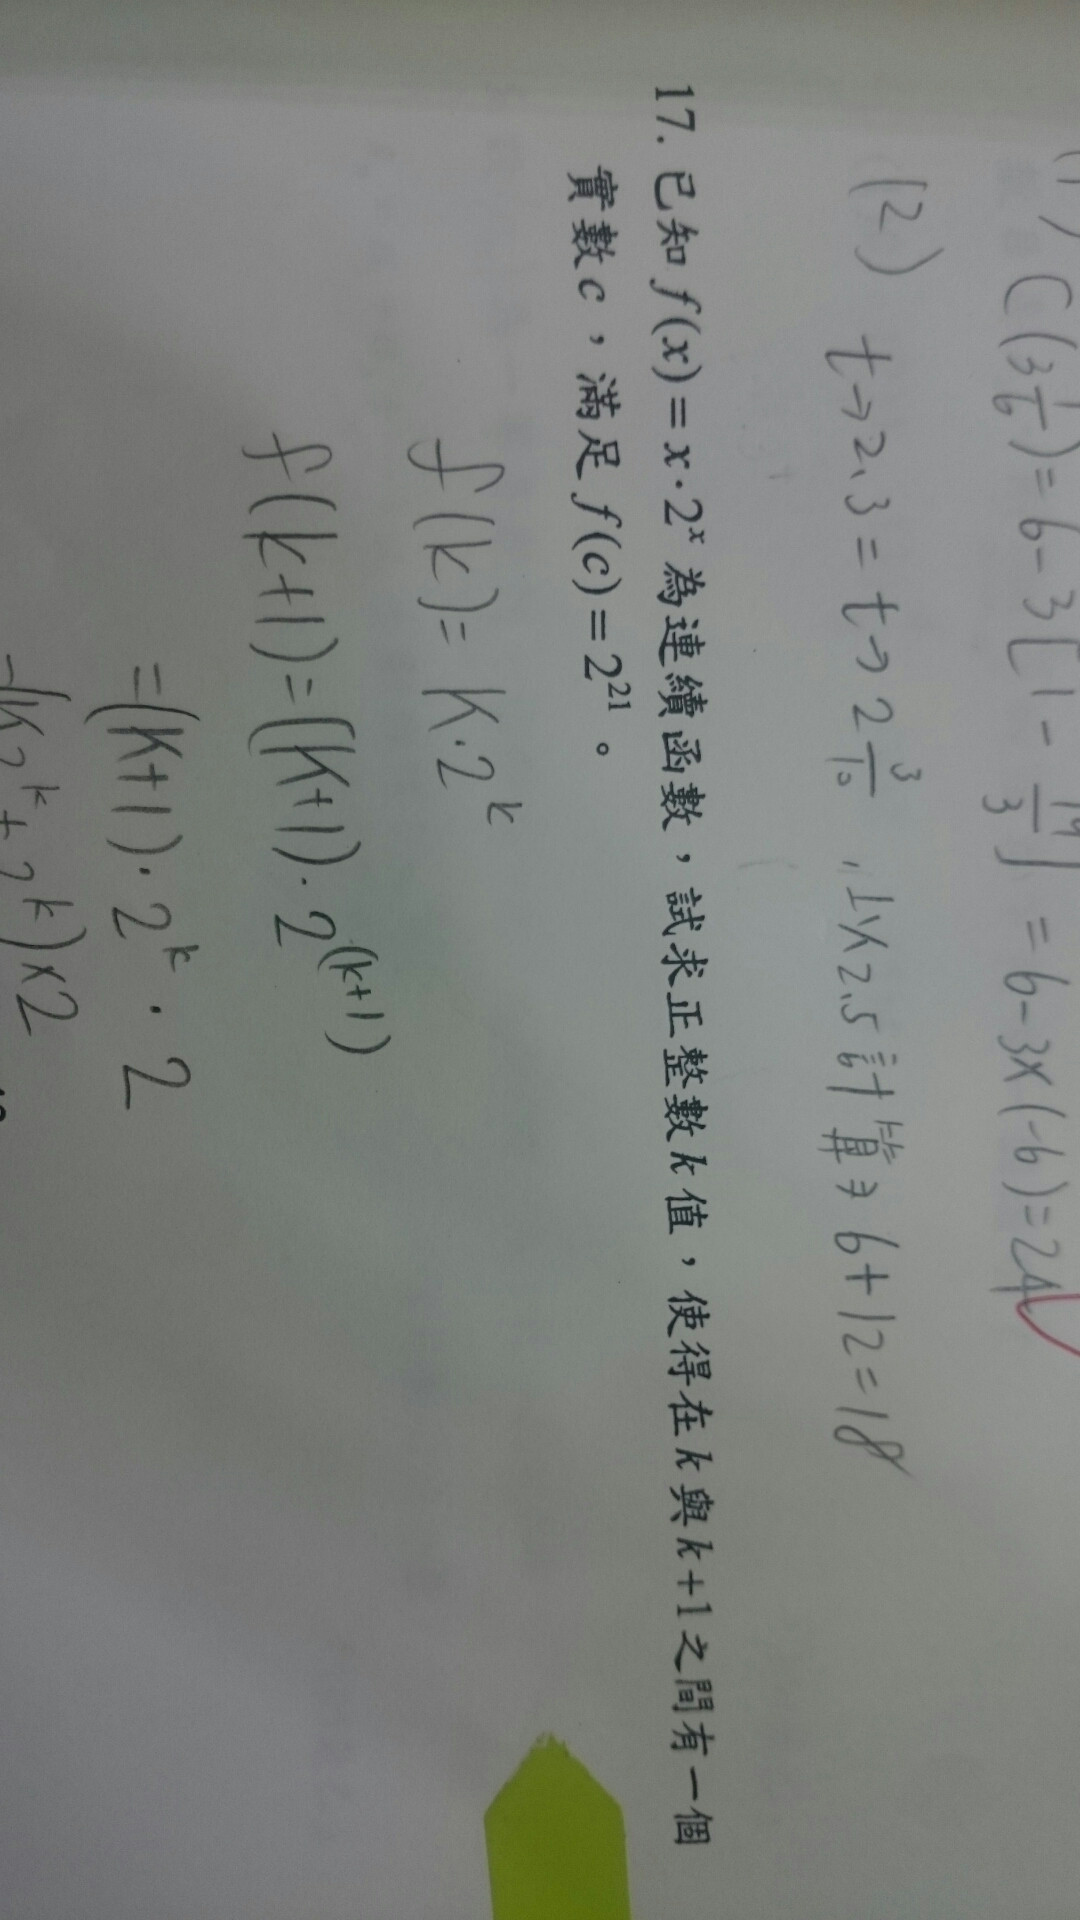 C(3 1/6) = 6 - 3[1 - 19/3] = 6 - 3×(-6) = 24
(2) t→2.3 = t→2 3/10,以2.5計算→6+12=18
17. 已知 f(x)=x·2ˣ 為連續函數,試求正整數k值,使得在k與k+1之間有一個
實數c,滿足 f(c)=2²¹。
f(k)=k·2ᵏ
f(k+1)=(k+1)·2⁽ᵏ⁺¹⁾
=(k+1)·2ᵏ·2
=(k2ᵏ+2ᵏ)×2